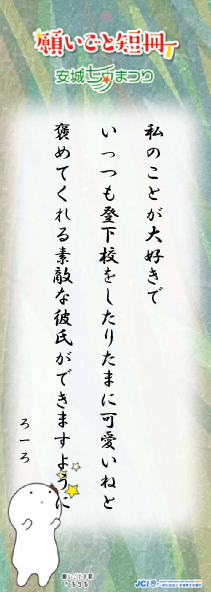 願いごと短冊
安城七夕まつり
私のことが大好きで
いっつも登下校をしたりたまに可愛いねと
褒めてくれる素敵な彼氏ができますように
ろーろ
JCI